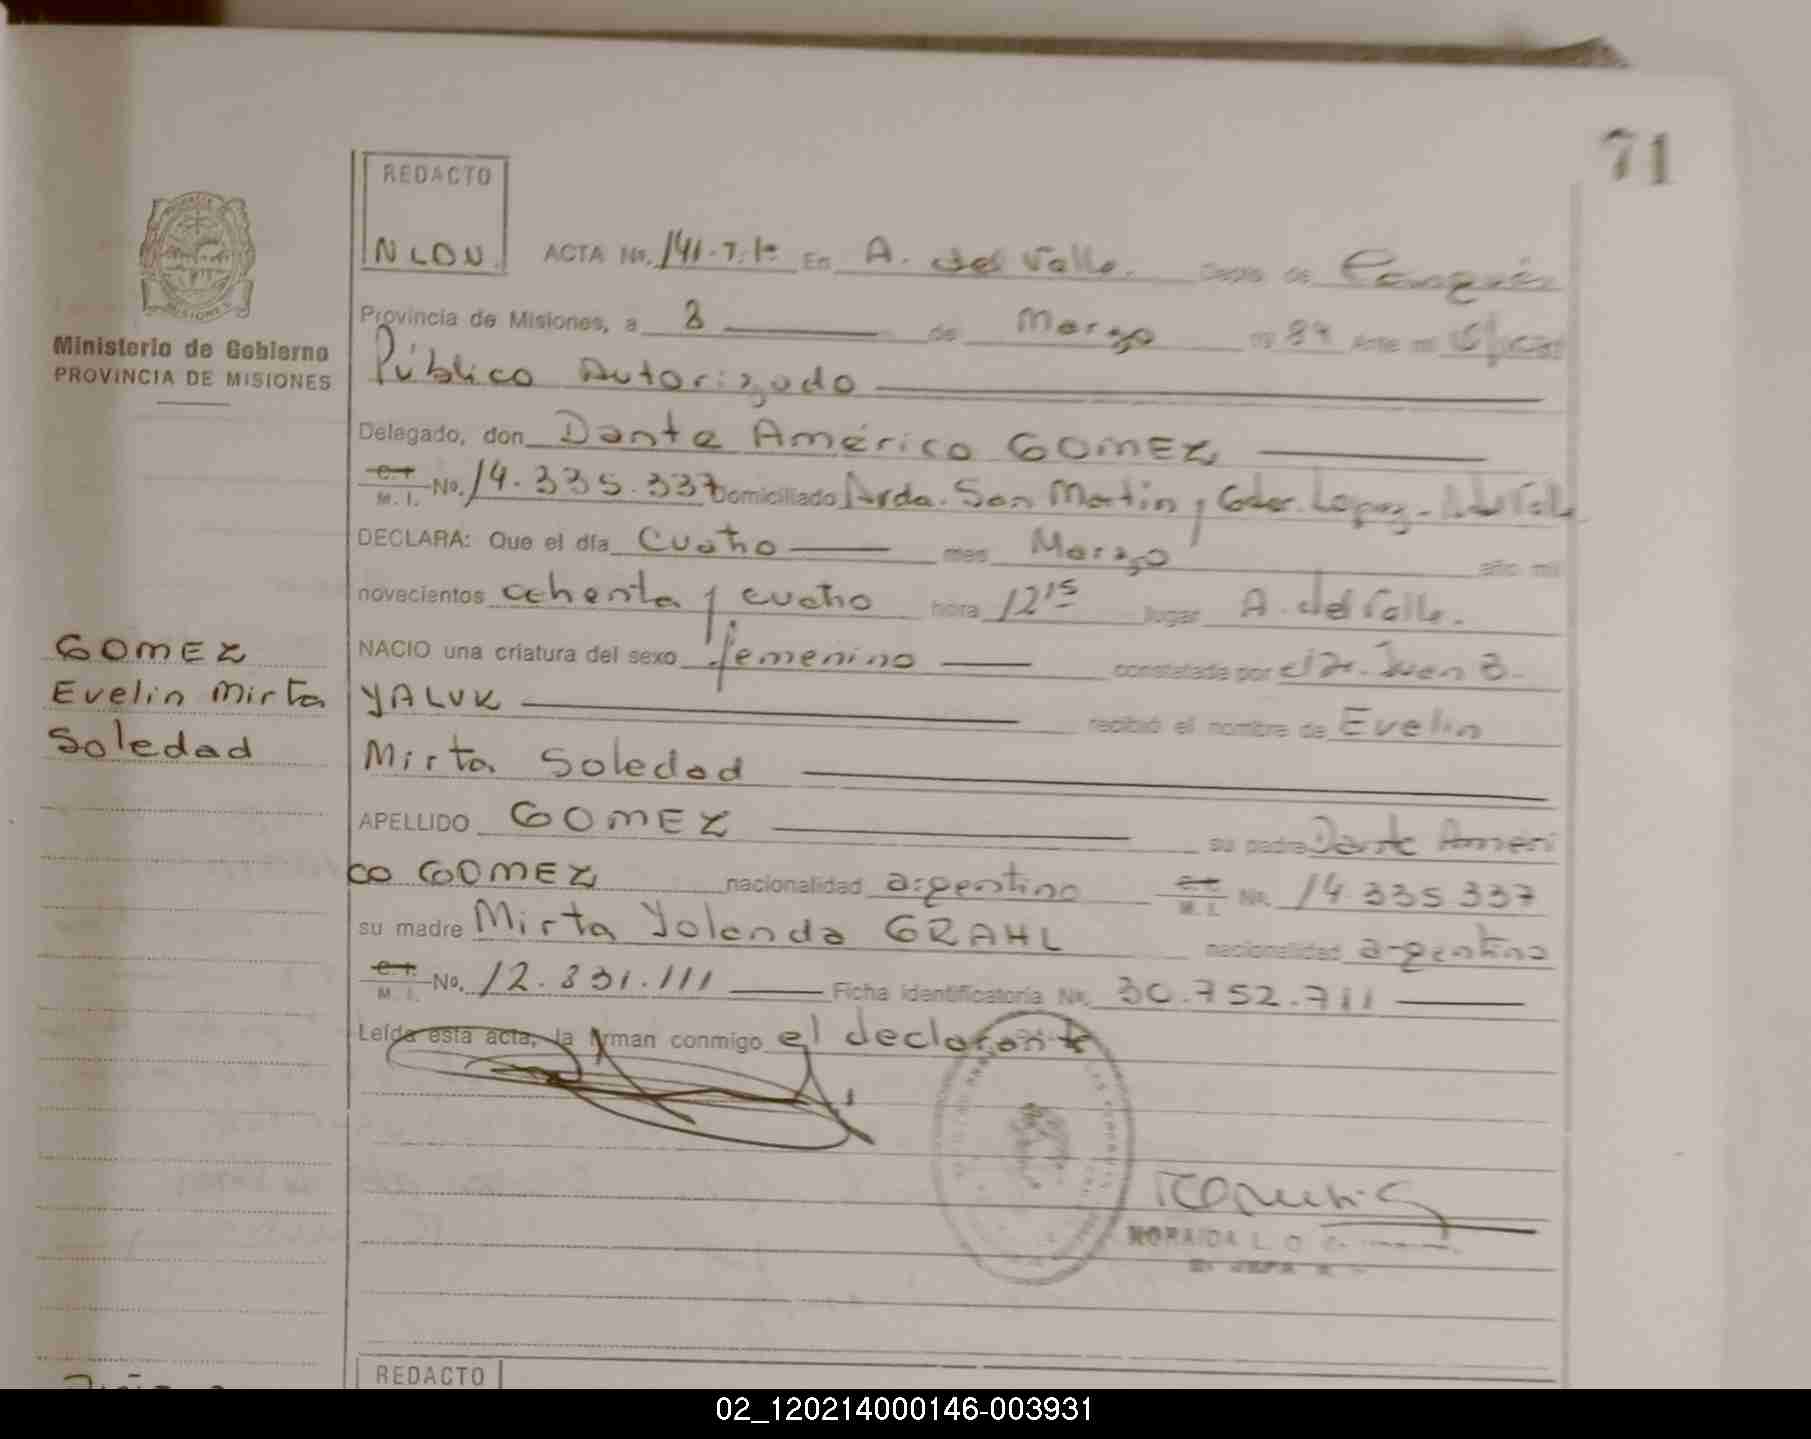 71
REDACTO
NLDN ACTA No. 141.T.1º En A. del Valle. Depto de Cainguás
Provincia de Misiones, a 8 de Marzo 84 Ante mi
Ministerio de Gobierno
PROVINCIA DE MISIONES
Público Autorizado
Delegado, don Dante Américo GOMEZ
M. I. No. 14.335.337 Domiciliado Avda. San Martin y Gdor. Lopez - A del Valle
DECLARA: Que el día Cuatro mes Marzo año mil
novecientos ochenta y cuatro hora 12 15 lugar A. del Valle.
NACIO una criatura del sexo femenino constatada por el Dr. Juan B.
YALUK recibió el nombre de Evelin
Mirta Soledad
GOMEZ
Evelin Mirta
Soledad
APELLIDO GOMEZ su padre Dante Améri
co GOMEZ nacionalidad argentina M. I. No. 14.335 337
su madre Mirta Yolanda GRAHL nacionalidad argentina
M. I. No. 12.831.111 Ficha identificatoria No. 30.752.711
Leída esta acta, la firman conmigo el declarante
NORAIDA L.
REDACTO
02_120214000146-003931